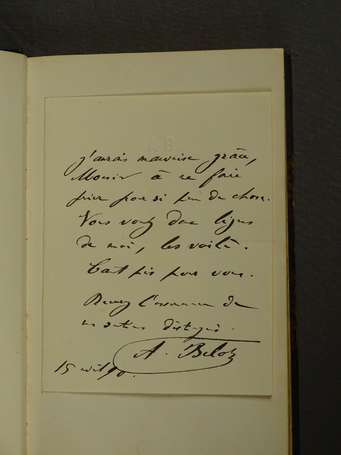 J'aurais mauvaise grâce,
Monsieur à me faire
prier pour si peu de chose.
Vous voulez deux lignes
de moi, les voilà.
Tant pis pour vous.
Recevez l'assurance de
mes sentiments distingués.
A. Belot
15 90.